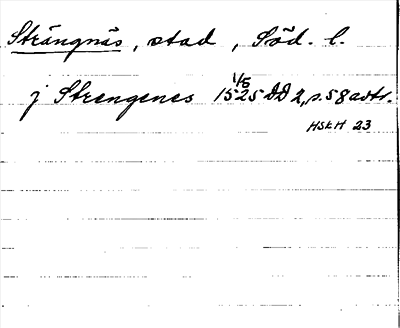 Strängnäs, stad, Söd. l.
j Strengenes 1/5 1525 DD 2, s. 58 avtr.
HSkH 23